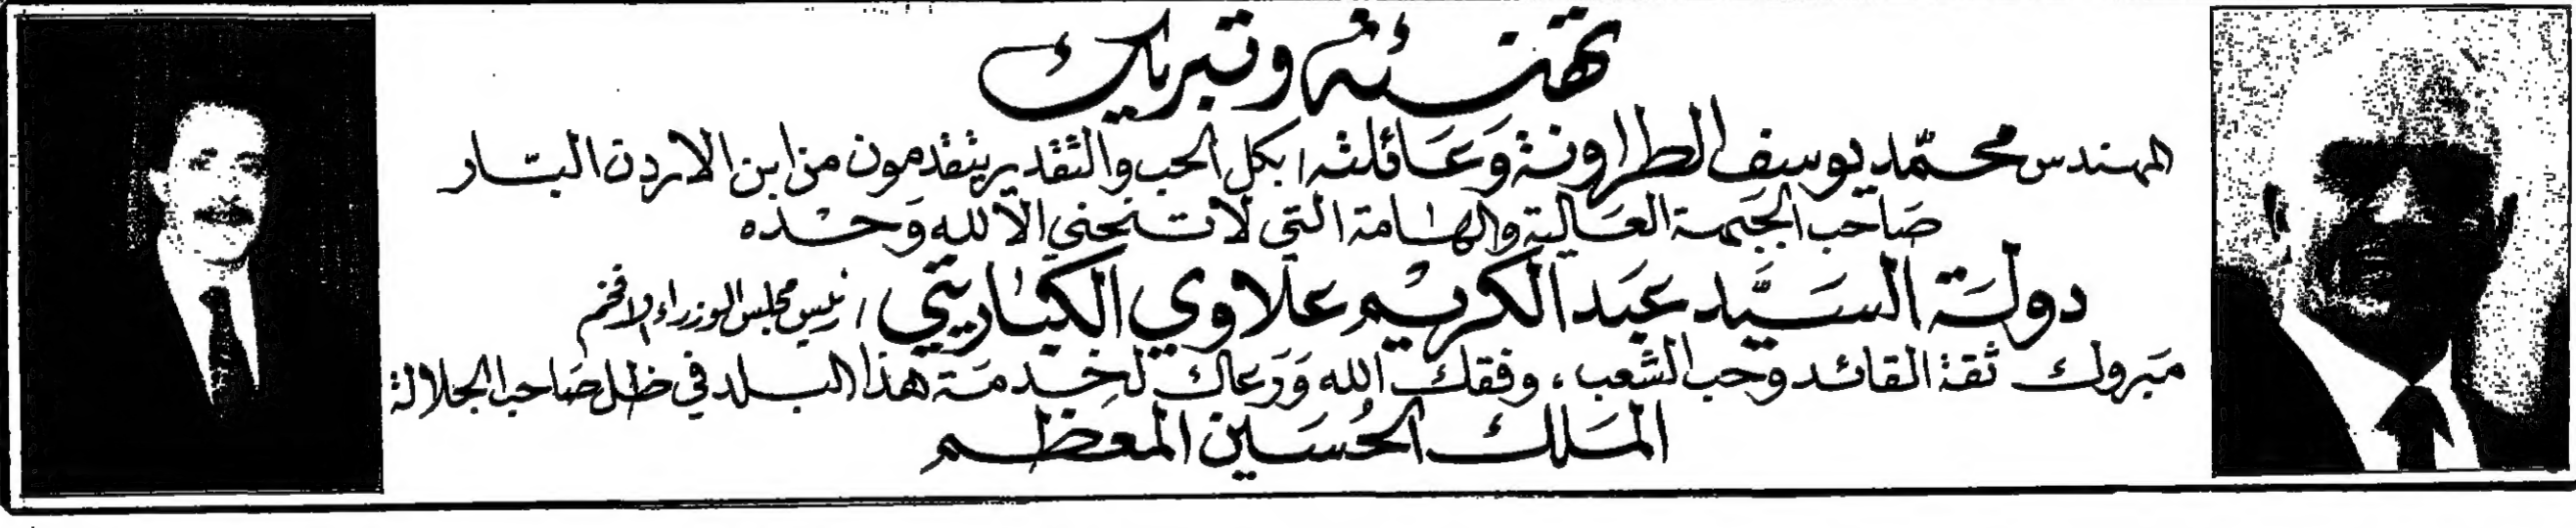 تهنئة وتبريك
المهندس محمّد يوسف الطراونة وَعَائلته؛ بكل الحب والتقدير يتقدمون من ابن الاردن البتّار
صَاحب الجبهة العَالية والهامة التي لا تنحني الا لله وَحْده
دولَة السَيَّد عبَد الكريْم علاوي الكبَاريتي، رئيس مجلس الوزراء الافخم
مَبروك ثقة القائد وحب الشعب، وفقك الله وَرَعاك لخِدمَة هذا البلد في ظل صَاحب الجلالة
الملَك الحُسَين المعَظم